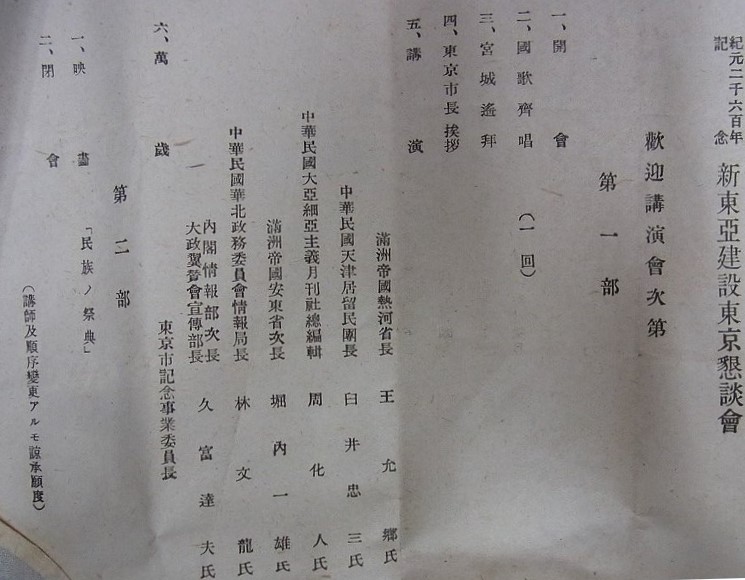 紀元二千六百年記念 新東亞建設東京懇談會
歡迎講演會次第
第一部
一、開會
二、國歌齊唱(一回)
三、宮城遙拜
四、東京市長挨拶
五、講演
滿洲帝國熱河省長 王允鄉氏
中華民國天津居留民團長 臼井忠三氏
中華民國大亞細亞主義月刊社總編輯 周化人氏
滿洲帝國安東省次長 堀內一雄氏
中華民國華北政務委員會情報局長 林文龍氏
內閣情報部次長
大政翼贊會宣傳部長 久富達夫氏
六、萬歲 東京市記念事業委員長
第二部
一、映畫「民族ノ祭典」
二、閉會
(講師及順序變更アルモ諒承願度)